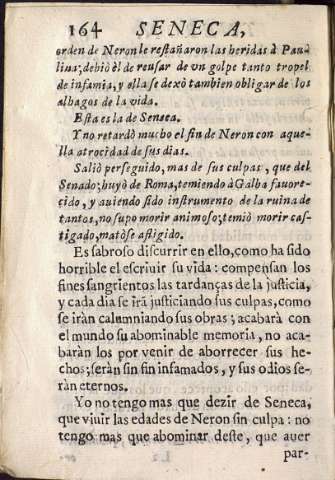 164 SENECA,
orden de Neron le restañaron las heridas à Pau-
lina; debiò èl de reusar de vn golpe tanto tropel
de infamia, y ella se dexò tambien obligar de los
alhagos de la vida.
Esta es la de Seneca.
Y no retardò mucho el fin de Neron con aque-
lla atrocidad de sus dias.
Saliò perseguido, mas de sus culpas, que del
Senado; huyò de Roma, temiendo à Galba fauore-
cido, y auiendo sido instrumento de la ruina de
tantos, no supo morir animoso; temiò morir cas-
tigado, matòse afligido.
Es sabroso discurrir en ello, como ha sido
horrible el escriuir su vida: compensan los
fines sangrientos las tardanças de la justicia,
y cada dia se irà justiciando sus culpas, como
se iràn calumniando sus obras; acabarà con
el mundo su abominable memoria, no aca-
baràn los por venir de aborrecer sus he-
chos; seràn sin fin infamados, y sus odios se-
ràn eternos.
Yo no tengo mas que dezir de Seneca,
que viuir las edades de Neron sin culpa: no
tengo mas que abominar deste, que auer
par-